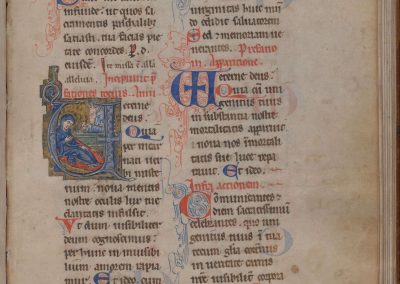 infunde: ut quos sa
cramentis paschalib;
satiasti. tua facias pie
tate concordes. P. d.
eiusdē. Ite missa ē. alla
alleluia. Incipiūt p
fationes totius Anni
eterne
deus.
Quia
per incar
nati uer
bi myste
rium. noua mentis
nostre oculis lux tue
claritatis infulsit.
Ut dum uisibiliter
deum cognoscimus.
per hunc in inuisibi
lium amorem rapia
mur. Et ideo cum
uirginitas huic mū
do edidit saluatorem
Sed et memoriam ue
nerantes. Prefatio
in Apparitione.
eterne deus.
Quia cū uni
genitus tuus
in substantia nostre
mortalitatis apparuit
i noua nos īmor
talitatis sue luce repa
rauit. Et ideo.
Infra actionem
Communicantes et
diem sacratissimū
celebrantes. quo uni
genitus tuus ī tua
tecum glia coeternus
in ueritate carnis
nre uisibiliter corpora